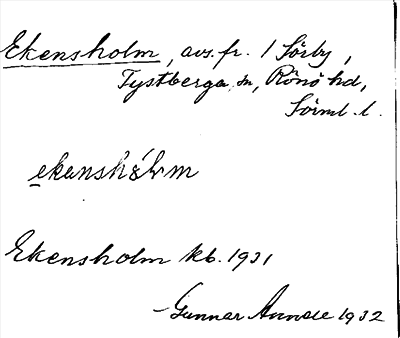 Ekensholm, avs. fr. 1 Sörby,
Tystberga sn, Rönö hd,
Sörml. l.
Ekensholm kb. 1931
Gunnar 1932